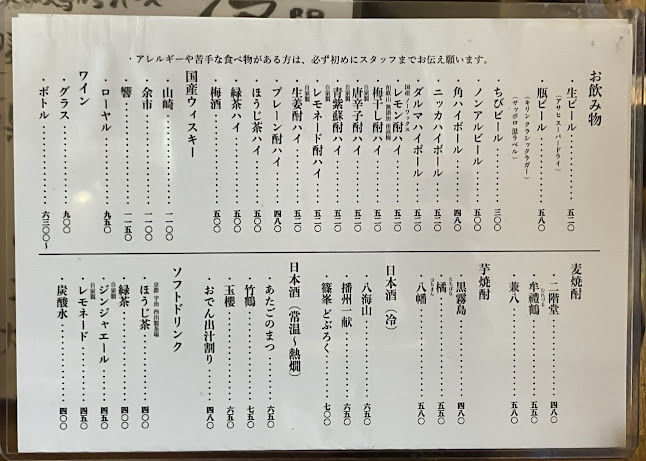 ・アレルギーや苦手な食べ物がある方は、必ず初めにスタッフまでお伝え願います。
お飲み物
・生ビール…………五二〇
（アサヒ スーパードライ）
・瓶ビール…………五八〇
（キリン クラシックラガー）
（サッポロ 黒ラベル）
・ちびビール…………三〇〇
・ノンアルビール…………五〇〇
・角ハイボール…………四八〇
・ニッカハイボール…………五二〇
・ダルマハイボール…………五二〇
国産ノーワックス
・レモン酎ハイ…………五二〇
・梅干し酎ハイ…………五二〇
自家製
・唐辛子酎ハイ…………五二〇
自家製
・青紫蘇酎ハイ…………五二〇
自家製
・レモネード酎ハイ…………五二〇
自家製
・生姜酎ハイ…………五二〇
・プレーン酎ハイ…………四八〇
・ほうじ茶ハイ…………五〇〇
・緑茶ハイ…………五〇〇
・梅酒…………五〇〇
国産ウィスキー
・山崎…………一一〇〇
・余市…………一一〇〇
・響…………一一五〇
・ローヤル…………九五〇
ワイン
・グラス…………九〇〇
・ボトル…………六三〇〇〜
麦焼酎
・二階堂…………四八〇
・牟禮鶴…………五五〇
むれづる
・兼八…………五八〇
芋焼酎
・黒霧島…………四八〇
・橘…………五五〇
たちばな
・八幡…………五八〇
はちまん
日本酒（冷）
・八海山…………六五〇
・播州一献…………六五〇
・篠峯 どぶろく…………七〇〇
日本酒（常温〜熱燗）
・あたごのまつ…………六五〇
・竹鶴…………七五〇
・玉櫻…………六五〇
・おでん出汁割り…………四八〇
ソフトドリンク
京都 宇治 西出製茶場
・ほうじ茶…………四〇〇
・緑茶…………四〇〇
自家製
・ジンジャエール…………四五〇
自家製
・レモネード…………四五〇
・炭酸水…………四〇〇